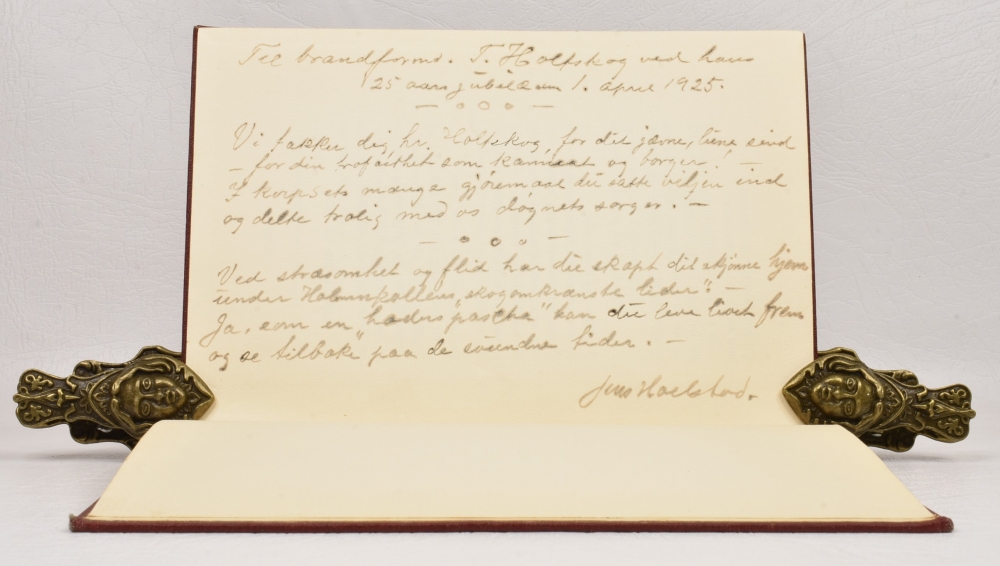 Til brandformd. T. Holtskog ved hans
25 aars jubilæum 1. april 1925.
Vi takker dig, hr. Holtskog, for dit jævne, lune sind
– for din trofasthet som kamerat og borger! –
I korpsets mange gjøremaal du satte viljen ind
og delte trolig med os døgnets sorger. –
Ved stræsomhet og flid har du skapt dit skjønne hjem
under Holmenkollens "skogomkranste lider". –
Ja, som en "hæderspascha" kan du leve livet frem
og se tilbake paa de svundne tider. –
Jens Hoelstad.